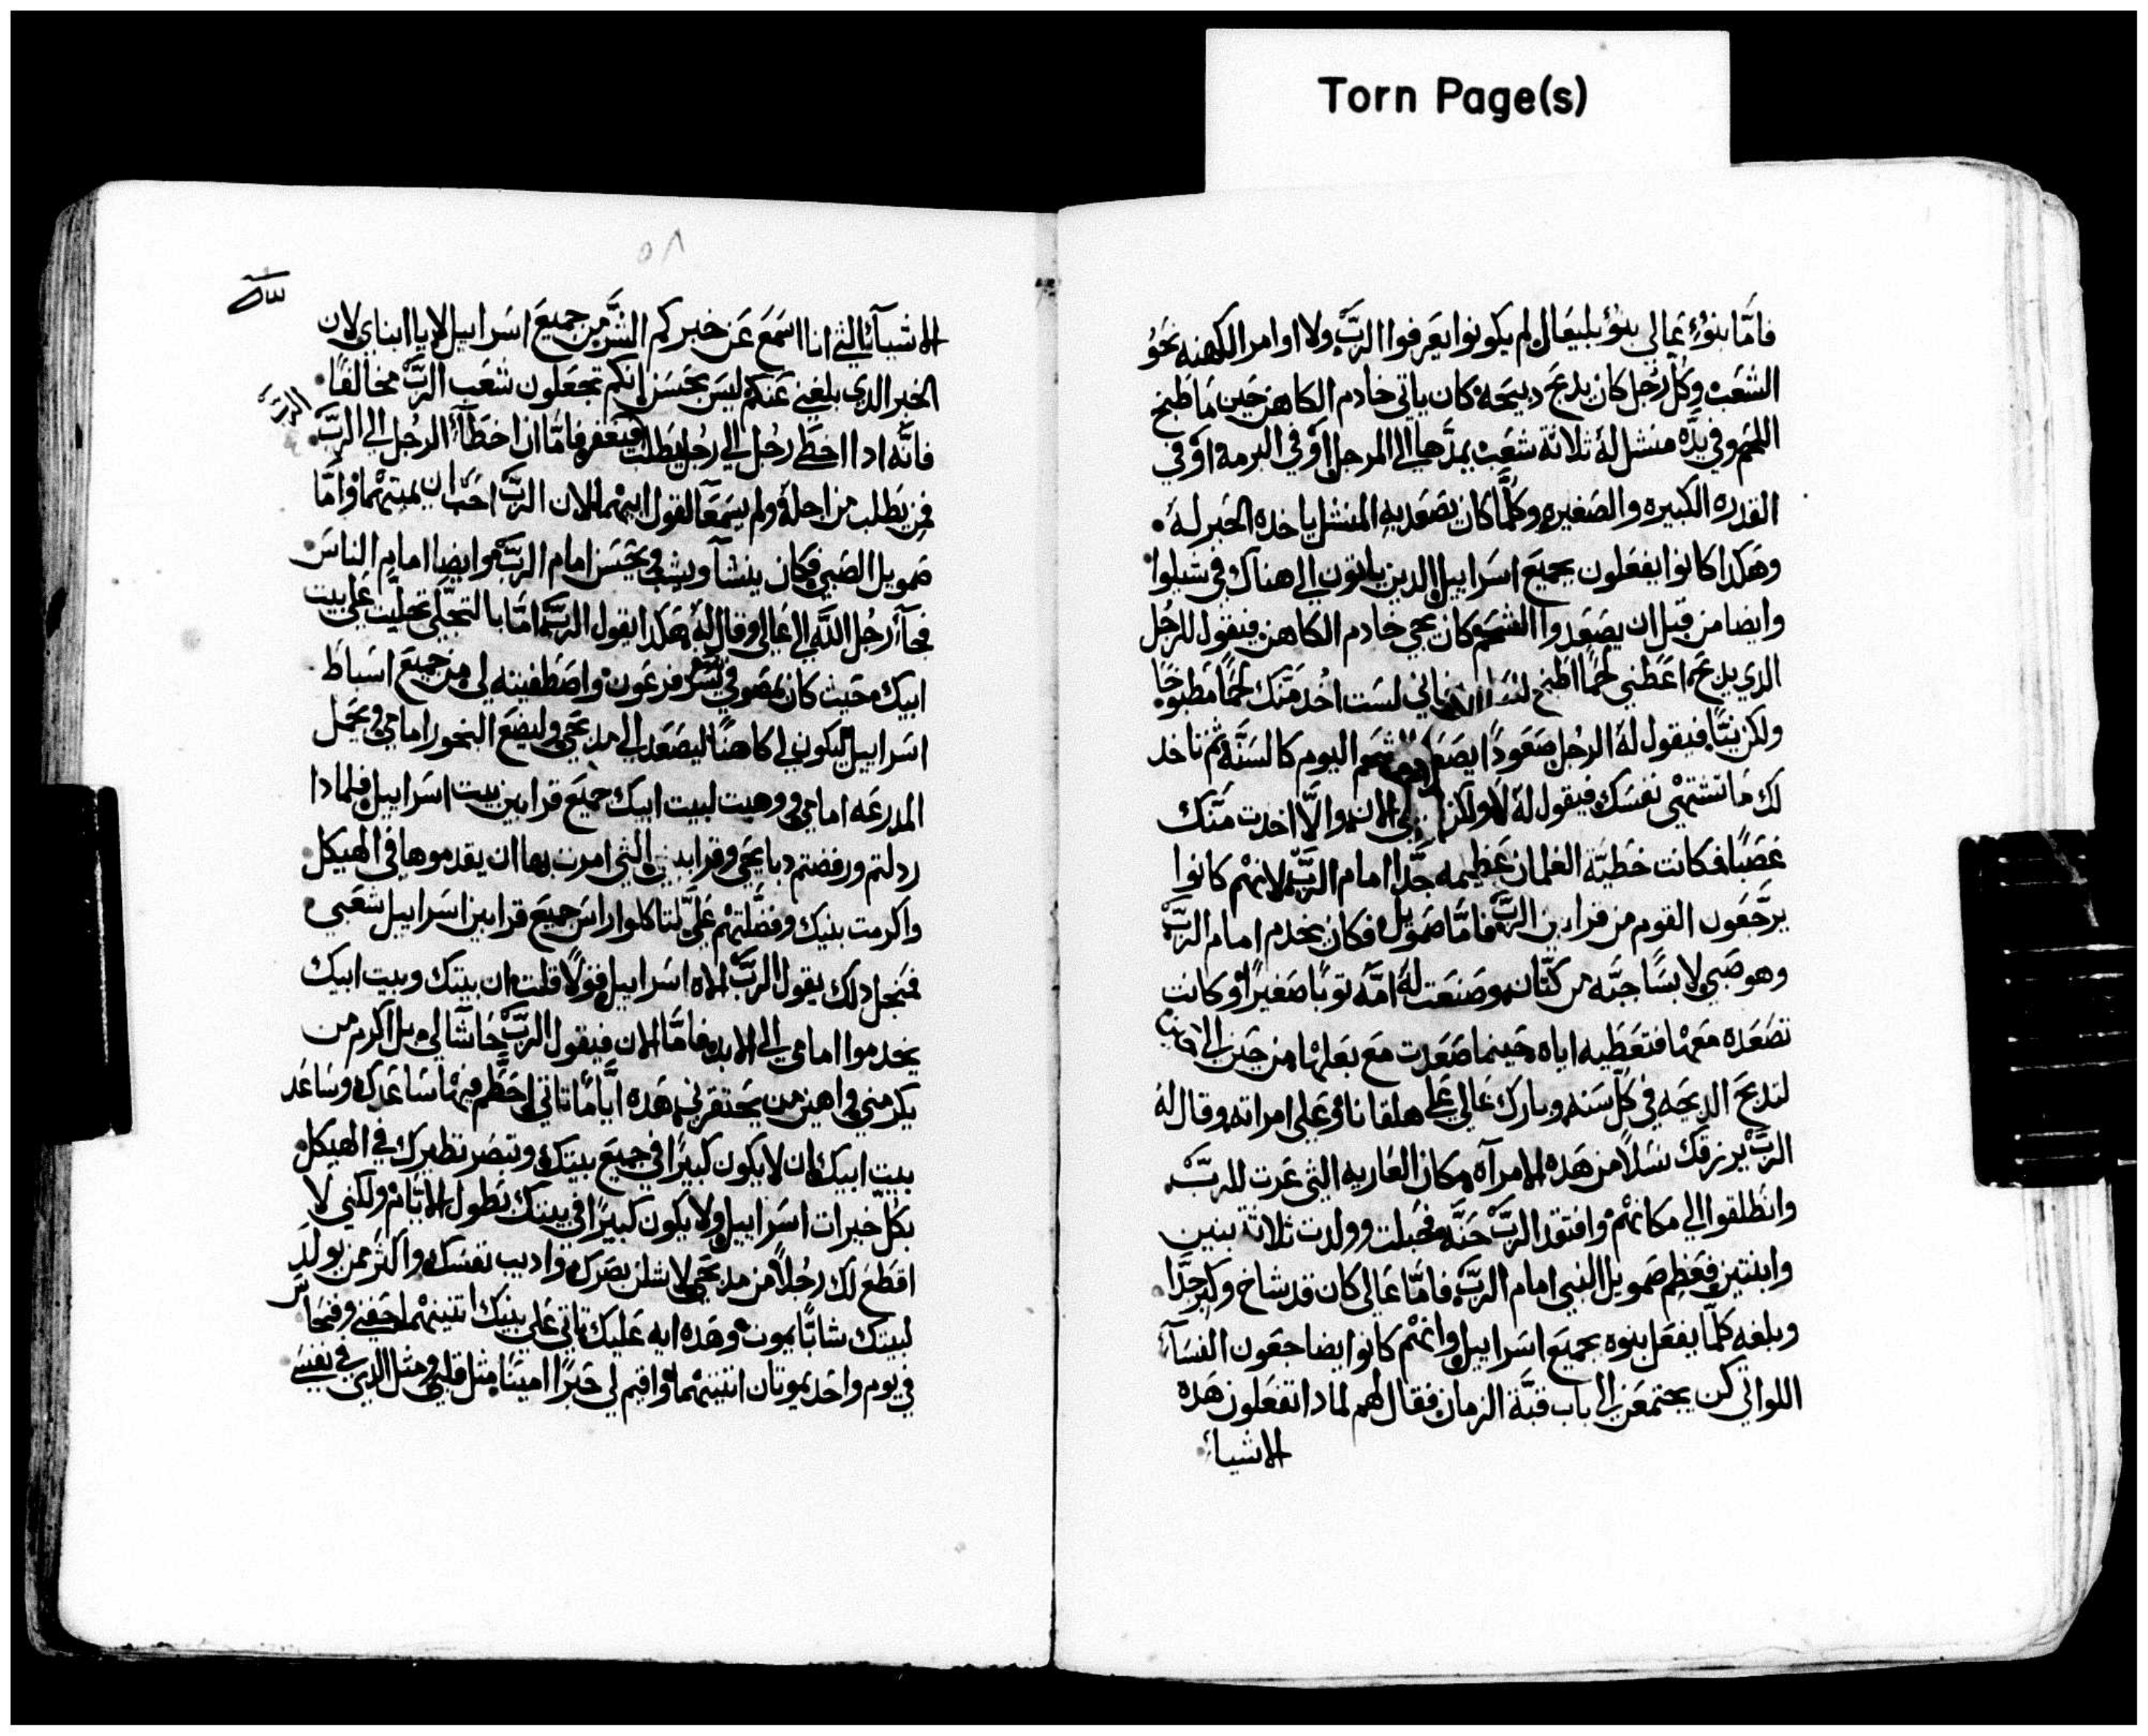 Torn Page(s)
فامّا بنوُ عالي بنوُ بليعال لم يكونوا يعرفوا الربّ ولا اوامر الكهنه نحوُ
الشعب وكل رجُل كان يدبح دبيحه كان ياتي خادم الكاهن حين ما طبخ
اللحم وفي يدّه منشل لهُ ثلاثة شعب يمدّها الى المرجل اوْ في البرمه اوْ في
القدره الكبيره والصغيره وكلما كان تصعد به المنشل ياخده الحبر لهُ
وهكدا كانوا يفعلون بجميع اسراييل الدين ياتون الى هناك في شيلوا
وايضا من قبل ان يصعدوا الشحم كان يجي خادم الكاهن فيقول للرجُل
الدي يدبح اعطني لحمًا اطبخ فاني لست اخُد منك لحمًا مطبوخًا
ولكن نيًّا فيقول لهُ الرجُل صعودًا يصعد الشحم اليوم كالسنّة ثم تاخد
لك ما تشتهي نفسك فيقول لهُ لا ولكن الان والّا اخدت منّك
غصبًا فكانت خطيّة الغلمان عظيمه جدّا امام الربّ لانهم كانوا
يرجّعون القوم من قرابين الربّ فامّا صمويل فكان يخدم امام الربّ
وهو صبي لابسًا جبّه من كتّان وصنعت لهُ امّهُ توبًا صغيرًا وكانت
تصعده معها فتعطيه اياه حينما صعدت مع بعلها من حين الى حين
لتدبح الدبيحه في كلّ سنه وبارك عالي على هلقانا وعلى امراته وقال لهُ
الربّ يرزقك نسلاً من هده الامرآه مكان العاريه التي عرت للربّ
وانطلقوا الى مكانهم وافتقد الربّ حنّه فحبلت وولدت ثلاثة بنين
وابنتين فعظم صمويل النبي امام الربّ فامّا عالي كان قد شاخ وكبر جدّا
وبلغه كلّما يفعل بنوه بجميع اسراييل وانهم كانوا يضاجعون النسآء
اللواتي كن يجتمعن الى باب قبّة الزمان فقال لهم لمادا تفعلون هده
الاشيآء
٥٨
الاشيآء التي انا اسمع عن خبركم الشرّ من جميع اسراييل لا يا ابناي لان
الخبر الدي بلغني عنكم ليس بحسن انكم تجعلون شعب الربّ مخالفًا
الربّ
فانّه ادا اخطى رجُل الى رجُل يطلب فيغفر فامّا ان اخطآ الرجُل الى الربّ
فمن يطلب من اجله ولم يسمعا لقول ابيهما لان الربّ احبّ ان يميتهما وامّا
صمويل الصبي فكان ينشآ ويشب ويحسن امام الربّ وايضا امام الناس
فجآ رجُل اللّه الى عالي وقال لهُ هكدا يقول الربّ امّا بالتجلّي تجليت على بيت
ابيك حيث كان بمصر في بيت فرعون واصطفيته لي من جميع اسباط
اسراييل ليكون لي كاهنًا ليصعد الى مدبحي وليضع البخور امامي ويحمل
المدرعه امامي ووهبت لبيت ابيك جميع قرابين بيت اسراييل فلمادا
ردلتم ورفضتم دبايحي وقرابيني التي امرت بها ان يقدموها في الهيكل
واكرمت بنيك وفضّلتهم عليّ لتاكلوا راس جميع قرابين اسراييل شعبي
فمنجل دلك يقول الربّ الاه اسراييل قولًا قلت ان بيتك وبيت ابيك
يخدموا امامي الى الابد فامّا الان فيقول الربّ حاشا لي بل اكرم من
يكرمني واهين من يحتقرني هده ايّامًا تاتي احطّم فيها ساعدك وساعد
بيت ابيك لان لا يكون كبيرًا في جميع بيتك وتبصر نظيرك في الهيكل
بكل خيرات اسراييل ولا يكون كبيرًا في بيتك بطول الايّام ولكني لا
اقطع لك رجُلاً من مدبحي لاشلن بصرك واديب نفسك واكثر من يولد
لبيتك شابًّا يموت وهده ايه عليك تاتي على بنيك اتنيهما حفني وفنحاس
في يوم واحد يموتان اتنيهما واقيم لي حبرًا امينًا مثل قلبي ومثل الدي في نفسي